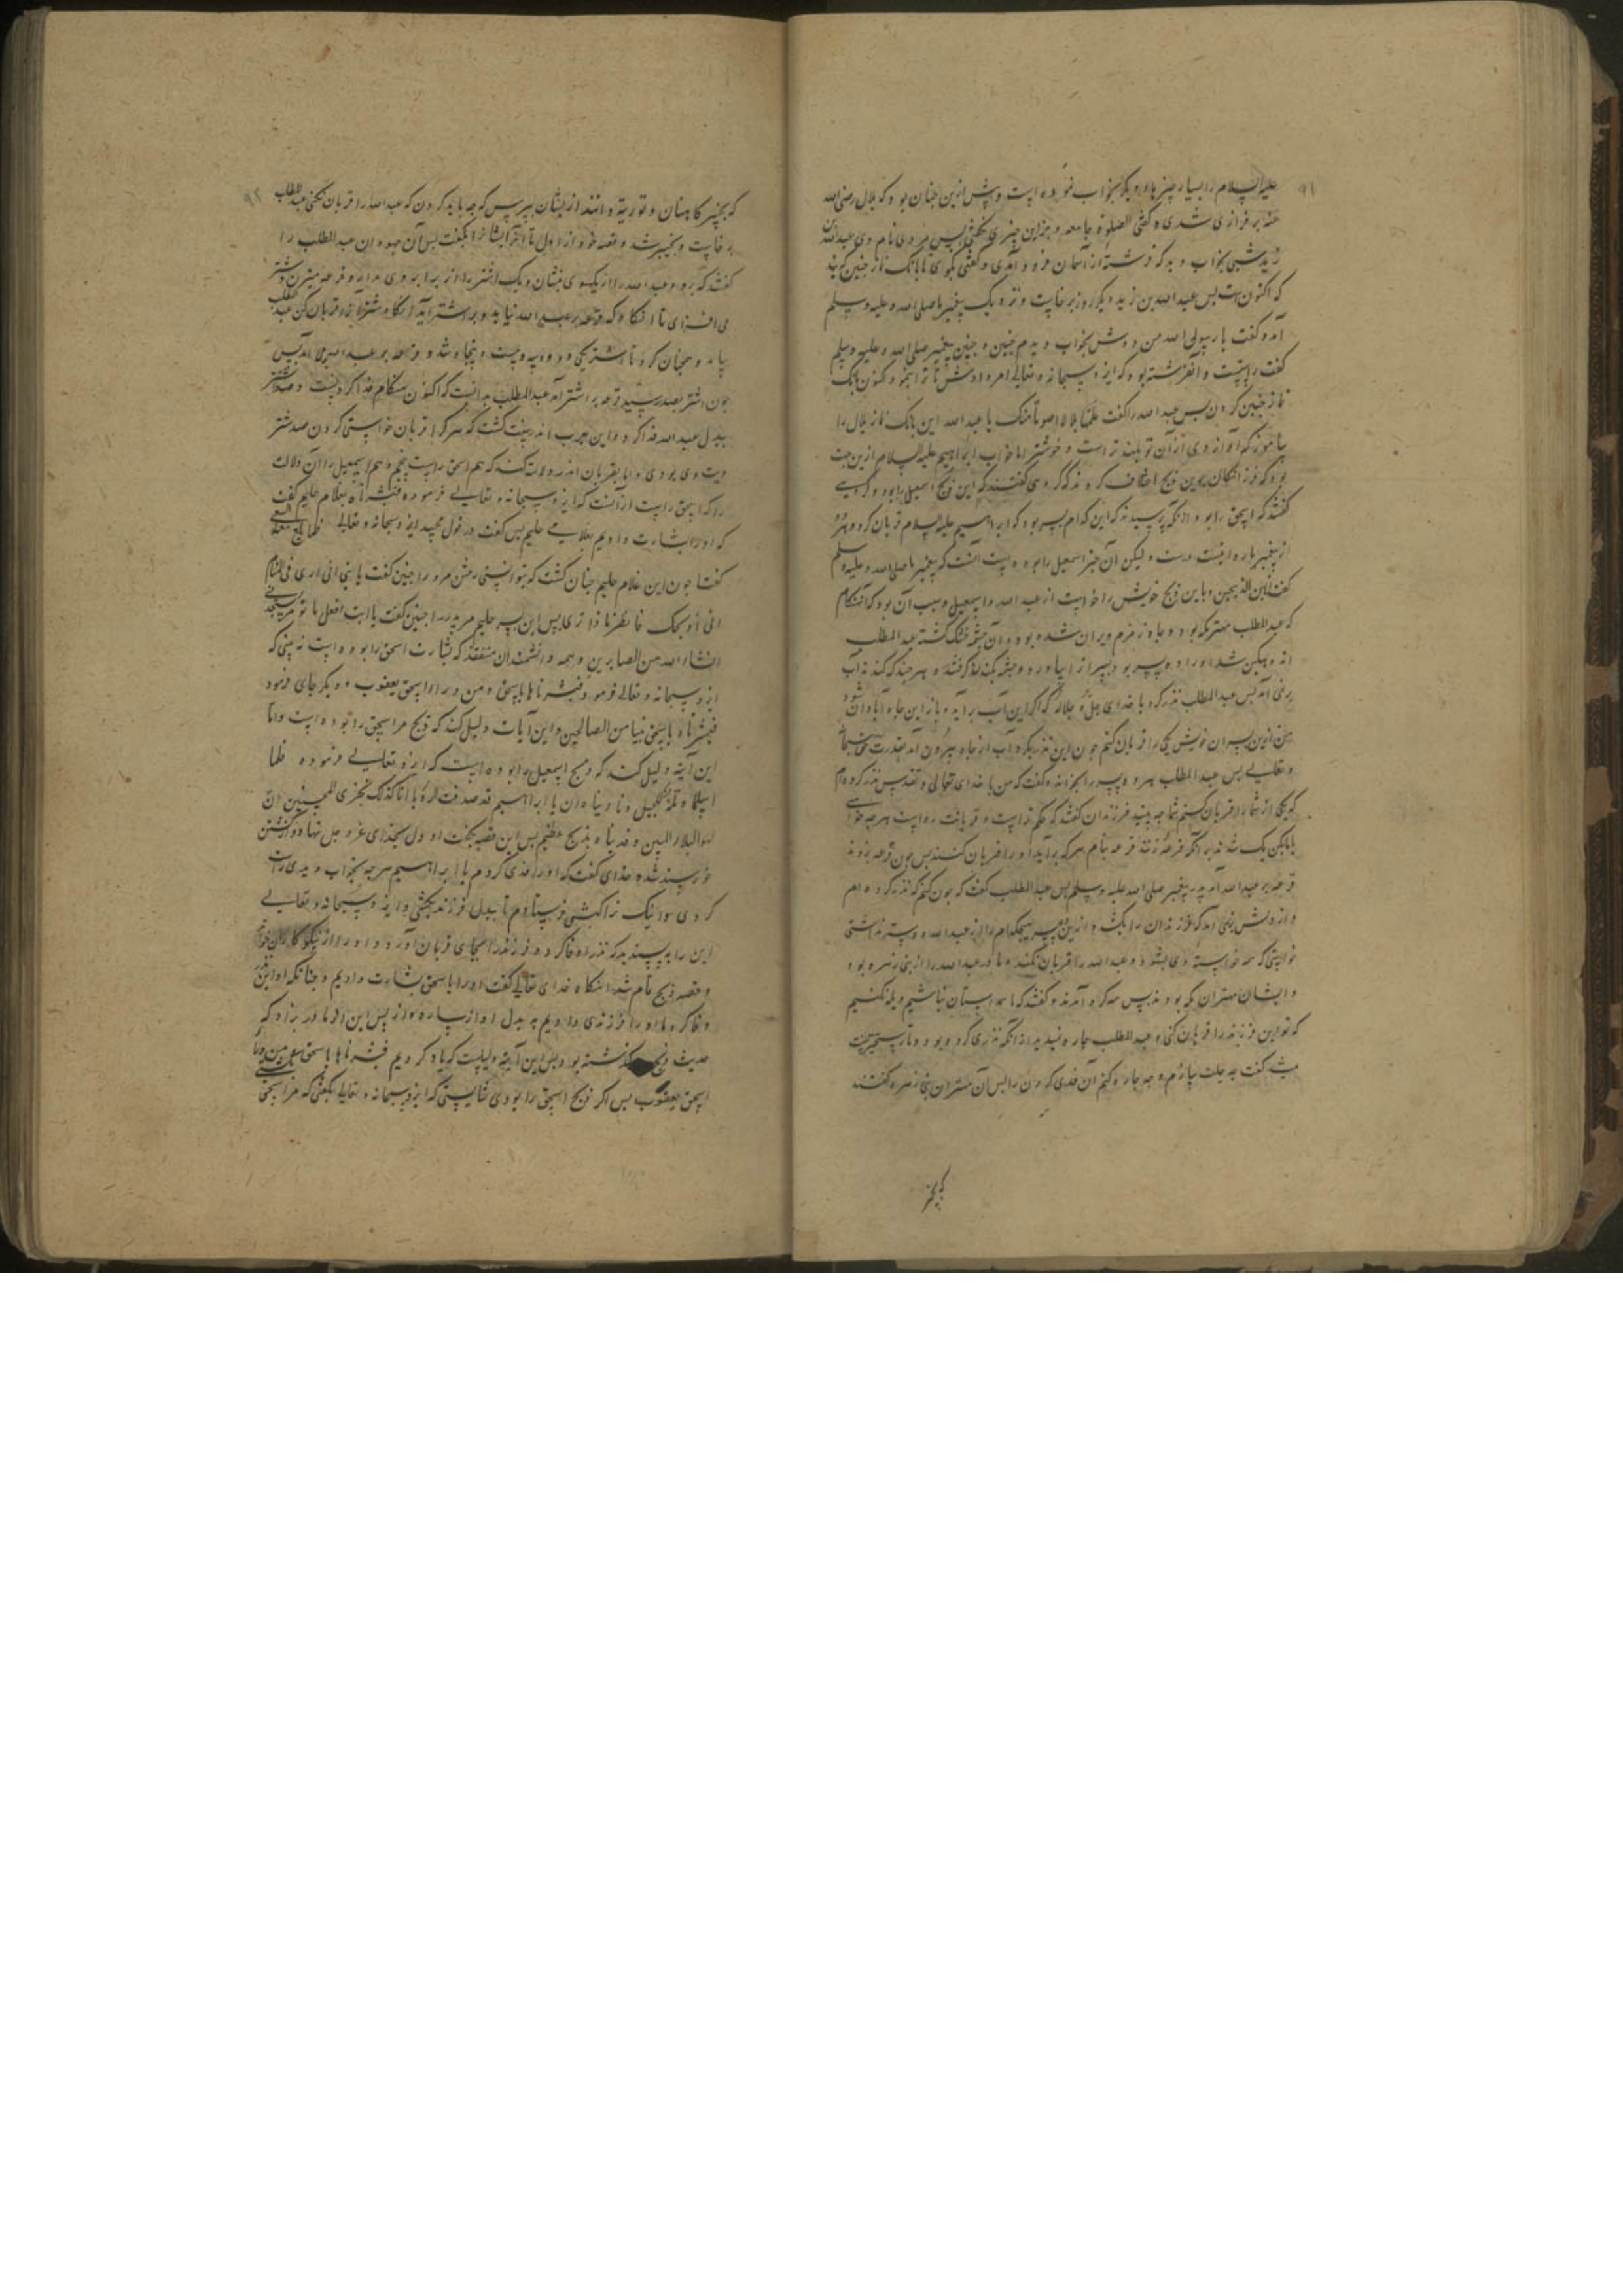 ۹۱
علیه السلام را بسیار چیزها دیگر بخواب نموده است و پیش ازین چنان بود که بلال رضی الله
عنه بر فرازی شدی و گفتی الصلوة جامعه و جز این چیزی نگفتی پس مردی نام وی عبدالله
زید شبی بخواب دید که فرشته از آسمان فرود آمدی و گفتی بگوی تا بانگ نماز چنین گویند
که اکنون است پس عبدالله بن زید دیگر روز برخاست و نزدیک پیغمبر ما صلی الله علیه وسلم
آمد و گفت یا رسول الله من دوش بخواب دیدم چنین و چنین پیغمبر صلی الله و علیه وسلم
گفت راست و آنفرشته بود که ایزد سبحانه و تعالی امر دادش تا ترا بنمود اکنون بانگ
نماز چنین کردن پس عبدالله را گفت علمها بلالا صوتا منک یا عبدالله این بانگ نماز بلال را
بیاموز که آواز وی از آن تو بلندتر است و خوشتر اما خواب ابراهیم علیه السلام ازین جهت
بود که فرزانگان بدین ذبح اختلاف کردند که گروهی گفتند که این ذبح اسمعیل را بود و گروهی
گفتند که اسحق را بود و از آنکه پرسیدند که این کدام پسر بود که ابراهیم علیه السلام قربان کرد و هر دو
از پیغمبر ما روایتست درست ولیکن آن خبر اسمعیل را بوده است آنست که پیغمبر ما صلی الله و علیه وسلم
گفت انا ابن الذبیحین و باین ذبح خویش را خواست از عبدالله و اسمعیل و سبب آن بود که آنهنگام
که عبدالمطلب مهتر مکه بود و چاه زمزم ویران شده بود و آن چشمه خشک گشته عبدالمطلب
اندوهگین شد او را ده پسر بود پسر از بیاورد و چشمه بکندن گرفتند و هرچند که کندند آب
برنمی آمد پس عبدالمطلب نذر کرد با خدای جل و جلاله که اگر این آب برآید و باز این چاه آبادان شود
من ازین پسران خویش یکی را قربان کنم چون این نذر بکرد آب از چاه بیرون آمد بقدرت حق سبحانه
و تعالی پس عبدالمطلب هر ده پسر را بخواند و گفت که من با خدای تعالی و تقدیس نذر کرده ام
که یکی از شما را قربان کنم شما چه بینید فرزندان گفتند که حکم تراست و فرمانت رواست هرچه خواهی
با ما بکن یک شدند بر آنکه قرعه زنند قرعه بنام هر که برآید او را قربان کنند پس چون قرعه بزدند
قرعه بر عبدالله آمد پدر پیغمبر صلی الله علیه وسلم پس عبدالمطلب گفت که چون کنم که نذر کرده ام
و از دلش نمی آمد که فرزندان را بکشد و ازین ده پسر هیچکدام را از عبدالله دوستر نداشتی
خواستی که همه خواسته وی بشود و عبدالله را قربان نکند و مادر عبدالله را از بنی زهره بود
و ایشان مهتران مکه بودند پس همه گرد آمدند و گفتند که ما همداستان نباشیم و یله نکنیم
که تو این فرزند را قربان کنی و عبدالمطلب چاره ندید از آنکه نذری کرده بود و نارستخیز جست
گفت چه حیلت سازم و چه چاره کنم آن فدی کردن را پس آن مهتران بنی زهره گفتند
که بخیبر
۹۲
که بخیبر کاهنان و توریة دانند از ایشان بپرس که چه باید کردن که عبدالله را قربان نکنی عبدالمطلب
برخاست و بخیبر شد و قصه خود از اول تا آخر ایشانرا بگفت پس آن جهودان عبدالمطلب را
گفتند که برو و عبدالله را از یکسوی بنشان و یک اشتر را از برابر وی بدار و قرعه میزن و شتر
می افزای تا آنگاه که قرعه بر عبدالله نیاید و بر اشتر آید آنگاه شتر را قربان کن عبدالمطلب
بیامد و همچنان کرد تا اشتر یکی و دو و سه و بیست و پنجاه شد و قرعه بر عبدالله همی آمد پس
چون اشتر بصد رسید قرعه بر اشتر آمد عبدالمطلب بدانست که اکنون هنگام فدا کردنست و صد شتر
ببدل عبدالله فدا کرد و این در عرب اندر سنت گشت که هر کرا قربان خواستی کردن صد شتر
دیت وی بودی و اما بقربان اندر دلالت کند که هم اسحق راست و هم اسمعیل را آن دلالت
را که اسحق راست از آنست که ایزد سبحانه و تعالی فرموده فبشرناه بغلام حلیم گفت
که او را بشارت دادیم بغلامی حلیم پس گفت در قول مجید ایزد سبحانه و تعالی فلما بلغ معه السعی
گفتا چون این غلام حلیم چنان گشت که بتوانستی رفتن مر او را چنین گفت یا بنی انی اری فی المنام
انی أذبحک فانظر ماذا تری پس این پسر حلیم مر پدر را چنین گفت یا ابت افعل ما تؤمر ستجدنی
انشاء الله من الصابرین و همه دانشمندان متفقند که بشارت اسحق را بوده است نه بینی که
ایزد سبحانه و تعالی فرمود فبشرناها باسحق و من وراء اسحق یعقوب و دیگر جای فرمود
فبشرناه باسحق نبیا من الصالحین و این آیات دلیل کند که ذبح مر اسحق را بوده است و اما
این آیته دلیل کند که ذبیح اسمعیل را بوده است که ایزد تعالی فرموده فلما
اسلما و تله للجبین و نادیناه ان یا ابراهیم قد صدقت الرؤیا انا کذلک نجزی المحسنین ان
لهو البلاء المبین و فدیناه بذبح عظیم پس این قصه بگفت او دل بخدای عز و جل نهاد و کشتن
خورسند شده خدای گفت که او را فدی کردم یا ابراهیم هرچه بخواب دیدی راست
کردی و اینک ترا کبشی فرستادم تا ببدل فرزند بکشی و ایزد سبحانه و تعالی
این را بپسندید که نذر او وفا کرد و فرزند را بجای قربان آورد و او را از نیکوکاران خواند
و قصه ذبح تمام شد آنگاه خدای تعالی گفت او را باسحق بشارت دادیم و چنانکه او این نذر
وفا کرد ما او را فرزندی دادیم به بدل او از ساره و از پس این از مادر بزاد که
حدیث ذبح گذشته بود و پس این آیته دلیلست که یاد کردیم فبشرناها باسحق و من وراء
اسحق یعقوب پس اگر ذبح اسحق را بودی نشایستی که ایزد سبحانه و تعالی بگفتی که مر اسحق